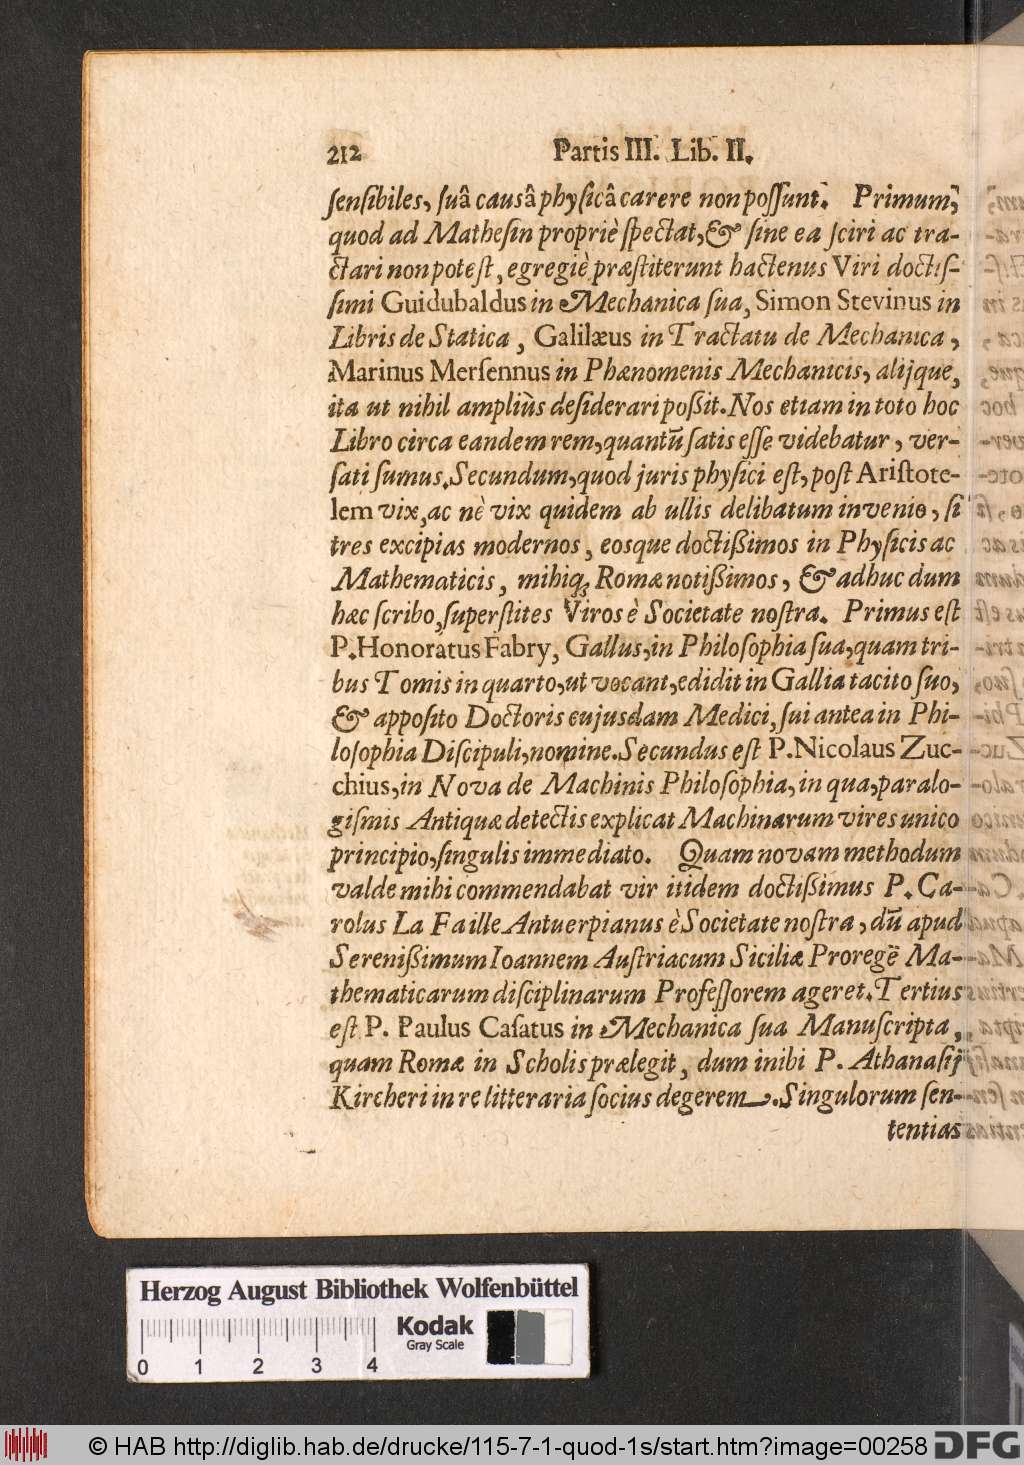 212 Partis III. Lib. II.
ſenſibiles, ſuâ causâ phyſicâ carere non poſſunt. Primum,
quod ad Matheſin propriè ſpectat, & ſine ea ſciri ac tra-
ctari non poteſt, egregiè præſtiterunt hactenus Viri doctiſ-
ſimi Guidubaldus in Mechanica ſua, Simon Stevinus in
Libris de Statica, Galilæus in Tractatu de Mechanica,
Marinus Merſennus in Phænomenis Mechanicis, alijque,
ita ut nihil ampliùs deſiderari poßit. Nos etiam in toto hoc
Libro circa eandem rem, quantũ ſatis eſſe videbatur, ver-
ſati ſumus. Secundum, quod juris phyſici eſt, poſt Ariſtote-
lem vix, ac nè vix quidem ab ullis delibatum invenio, ſi
tres excipias modernos, eosque doctißimos in Phyſicis ac
Mathematicis, mihiq; Romæ notißimos, & adhuc dum
hæc ſcribo, ſuperſtites Viros è Societate noſtra. Primus eſt
P. Honoratus Fabry, Gallus, in Philoſophia ſua, quam tri-
bus Tomis in quarto, ut vocant, edidit in Gallia tacito ſuo,
& appoſito Doctoris cujusdam Medici, ſui antea in Phi-
loſophia Diſcipuli, nomine. Secundus eſt P. Nicolaus Zuc-
chius, in Nova de Machinis Philoſophia, in qua, paralo-
giſmis Antiquæ detectis explicat Machinarum vires unico
principio, ſingulis immediato. Quam novam methodum
valde mihi commendabat vir itidem doctißimus P. Ca-
rolus La Faille Antuerpianus è Societate noſtra, dũ apud
Serenißimum Ioannem Auſtriacum Siciliæ Proregẽ Ma-
thematicarum diſciplinarum Profeſſorem ageret. Tertius
eſt P. Paulus Caſatus in Mechanica ſua Manuſcripta,
quam Romæ in Scholis prælegit, dum inibi P. Athanaſij
Kircheri in re litteraria ſocius degerem. Singulorum ſen-
tentias
Herzog August Bibliothek Wolfenbüttel
Kodak
Gray Scale
0 1 2 3 4
© HAB http://diglib.hab.de/drucke/115-7-1-quod-1s/start.htm?image=00258 DFG